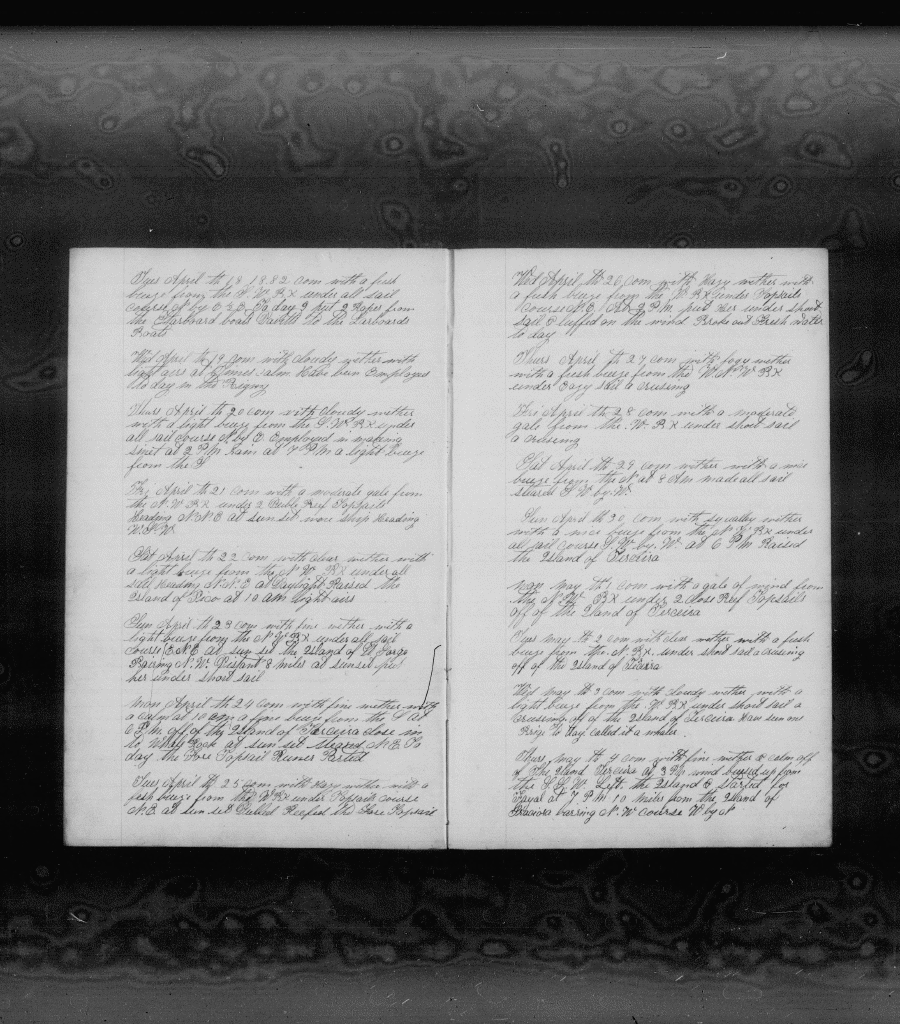 Tues April th 18 1882 Com with a fresh
breeze from the W. N. W. Bx under all sail
course N by E ½ E To day I put 2 Ropes from
the Starboard boats Davitt to the Larboards
Boats
Wed April th 19 com with cloudy wether with
light airs at times calm Have been Employed
to day in the Rigging
Thurs April th 20 com with cloudy wether
with a light breeze from the S. W. Bx under
all sail course N by E Employed in making
sinet at 2 P.M. rain at 7 P M a light breeze
from the S
Fri April th 21 com with a moderate gale from
the N W Bx under 2 Duble Reef Topsails
Heading N. N. E at sun set wore ship Heading
W. S. W.
Sat April th 22 com with clear wether with
a light breeze from the N. W. Bx under all
sail Heading N. N. E at Daylight Raised the
Island of Pico at 10 a m light airs
Sun April th 23 com with fine wether with a
light breeze from the N W Bx under all sail
course E. N E at sun set the Island of St Jorge
Baring N. W. Distant 8 miles at sunset put
her under short sail
Mon April th 24 com with fine wether with
a calm at 10 a m a fine breeze from the S at
6 P. M. off of the Island of Terceira close in
to Whale Rock at sun set N. E To
day the Fore Topsail Runer Parted
Tues April th 25 com with Hazy wether with a
fresh breeze from the W Bx under Topsails course
N. E. at sun set Duble Reefed the Fore Topsail
Wed April th 26 com with Hazy wether with
a fresh breeze from the W Bx under Topsails
course N. E. At 2 P.M. put her under short
sail & luffed on the wind Broke out Fresh water
to day
Thurs April th 27 com with fogy wether
with a fresh breeze from the W. N. W Bx
under Eazy sail a cruising
Fri April th 28 com with a moderate
gale from the W. Bx under short sail
a cruising
Sat April th 29 com wether with a nice
breeze from the N at 8 AM made all sail
S W by. W.
Sun April th 30 com with squally wether
with a nice breeze from the N. W Bx under
all sail course S. W. by. W. at 6 P M Raised
the Island of Terceira
Mon May th 1 com with a gale of wind from
the N. W. Bx under 2 Close Reef Topsails
off of the Island of Terceira
Tues May th 2 com with clear wether with a fresh
breeze from the N. Bx. under short sail a cruising
off of the Island of Terceira
Wed May th 3 com with cloudy wether with a
light breeze from the W Bx under short sail a
cruising off of the Island of Terceira Have seen one
Brige to day called it a whaler.
Thurs May th 4 com with fine wether & calm off
of the Island Terceira at 3 PM wind breezed up from
the S. S. W. Left the Island & Started for
Fayal at 7 P M 10 miles from the Island of
Graciosa barring N. W Course W by N